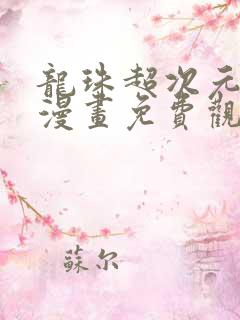 龍珠超次元
漫畫免費觀
蘇尔